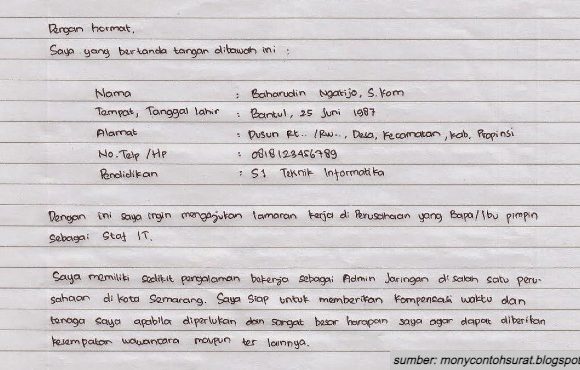 Dengan hormat,
Saya yang bertanda tangan dibawah ini :
Nama : Baharudin Ngatijo, S.Kom
Tempat, Tanggal lahir : Bantul, 25 Juni 1987
Alamat : Dusun Rt.. /Rw.., Desa, Kecamatan, Kab, Propinsi
No. Telp /Hp : 0818123456789
Pendidikan : S1 Teknik Informatika
Dengan ini saya ingin mengajukan lamaran kerja di Perusahaan yang Bapa/Ibu pimpin
sebagai Staf IT.
Saya memiliki sedikit pengalaman bekerja sebagai Admin Jaringan di salah satu peru-
sahaan di kota Semarang. Saya siap untuk memberikan kompensasi waktu dan
tenaga saya apabila diperlukan dan sangat besar harapan saya agar dapat diberikan
kesempatan wawancara maupun tes lainnya.
sumber: monycontohsurat.blogspot